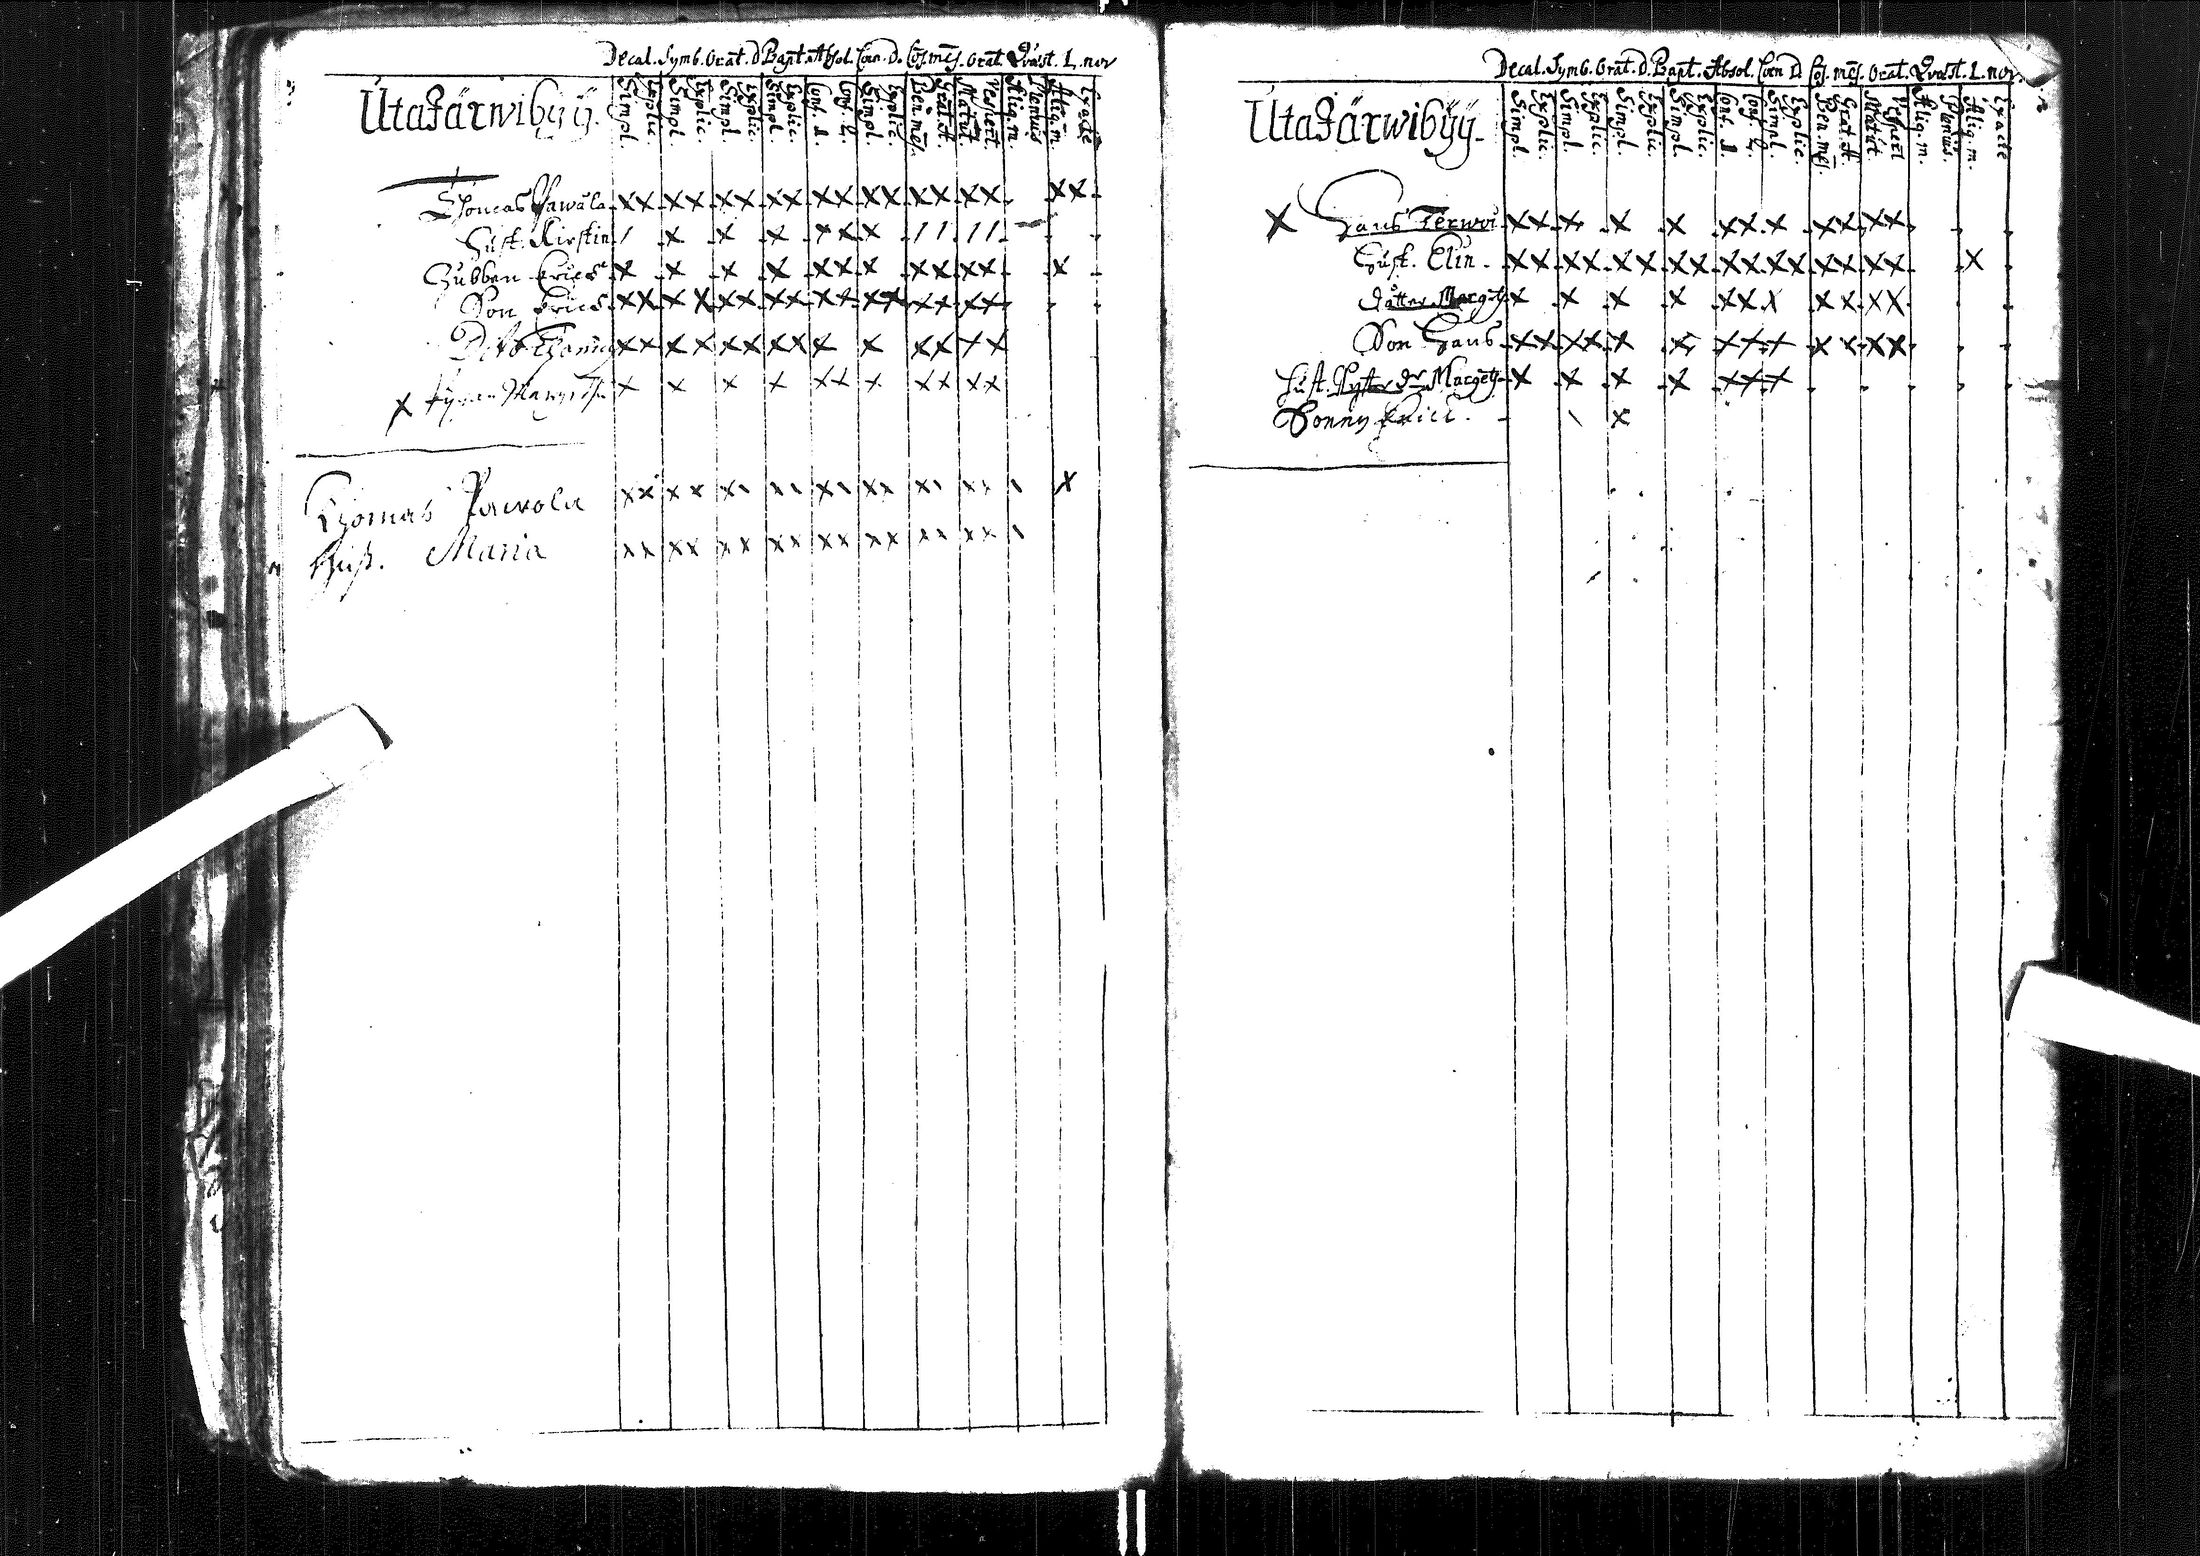 Decal. Symb. Orat. D Bapt. Absol. Coen. D. Cōs. mēs. Orat. Qvæst. L. nov
UtaJärwibÿÿ.
Simpl. Explic. Simpl. Explic. Simpl. Explic. Simpl. Explic. Conf. 1. Conf. 2. Simpl. Explic. Ben. mēs. Grat. A. Matut. Vespert. Aliq. m. Plenius Aliq. m. Exacte
Thomas Pawåla x x x x x x x x x x x x x x x x x x
Hust. Kirstin / x x x x x x / / / /
Gubben Erics x x x x x x x x x x x x
Son Erics x x x x x x x x x x x x x x x x
Dito Thomas x x x x x x x x x x x x x x
x Margeta x x x x x x x x x x x
Thomas Pawola x x x x x x x x x x x x x
Hust. Maria x x x x x x x x x x x x x x x x
Decal. Symb. Orat. D. Bapt. Absol. Coen D. Cōs. mēs. Orat. Qvæst. L. nov.
UtaJärwibÿÿ.
Simpl. Explic. Simpl. Explic. Simpl. Explic. Simpl. Explic. Conf. 1. Conf. 2. Simpl. Explic. Ben. mēs. Grat. A. Matut. Vespert Aliq. m. Plenius. Aliq. m. Exacte
x Hans Terwoi x x x x x x x x x x x x
Hust. Elin. x x x x x x x x x x x x x x x x x
dåtter Marget x x x x x x x x x x x
Son Hans x x x x x x x x x x x x x
Hust. dr Marget x x x x x x x
Sonny Erich. \ x